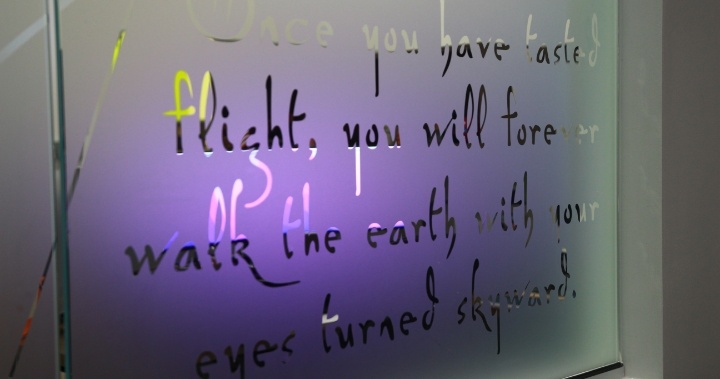 Once you have tasted
flight, you will forever
walk the earth with your
eyes turned skyward.